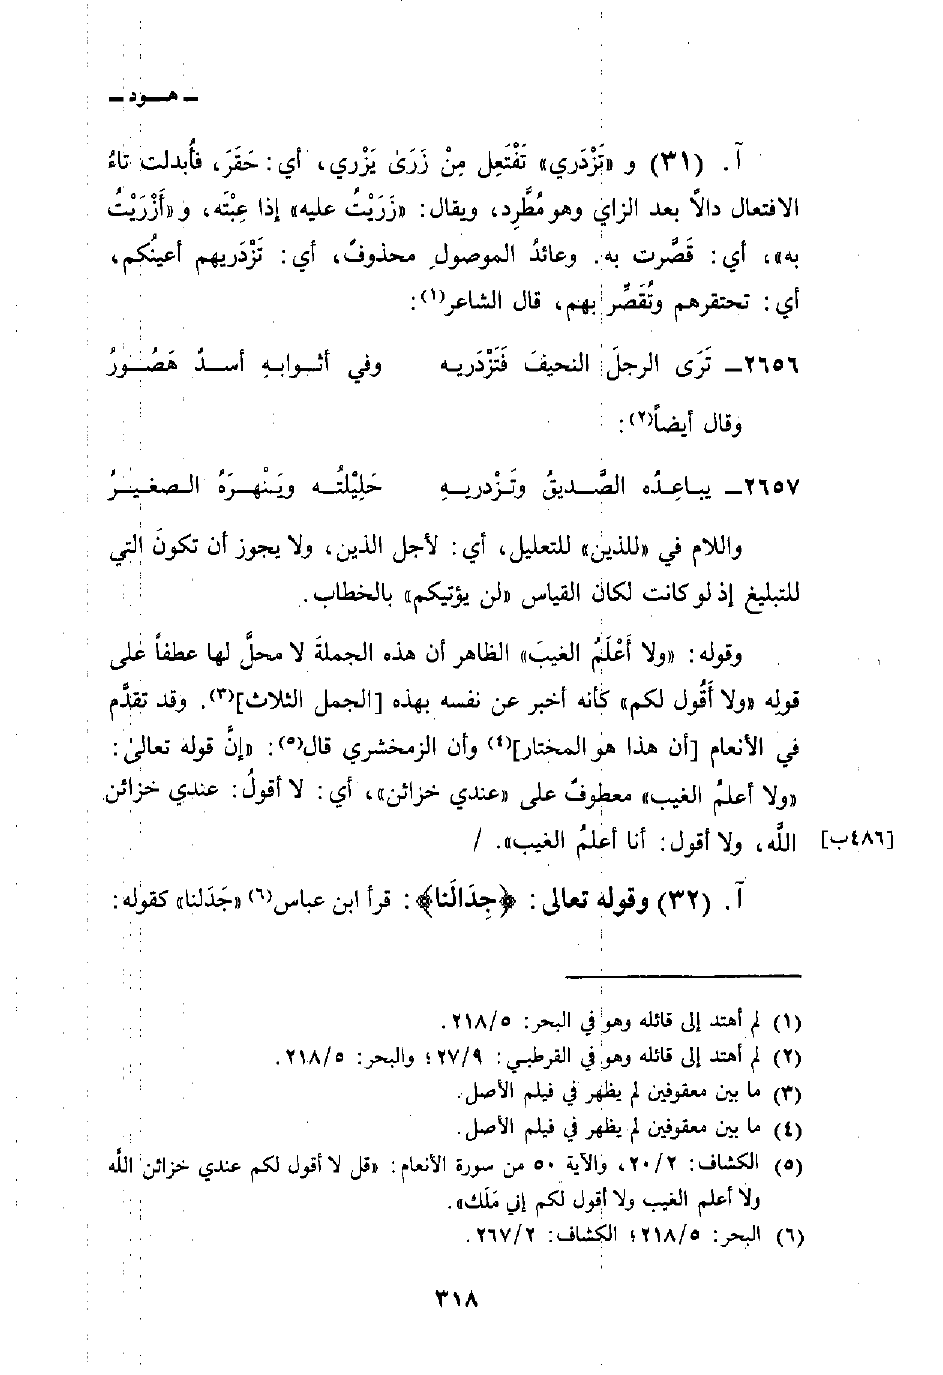 ـ هـود ـ
آ. (٣١) و «تَزْدَري» تَفْتَعِل مِنْ زَرَىٰ يَزْري، أي: حَقَرَ، فأُبدلت تاءُ
الافتعال دالاً بعد الزاي وهو مُطَّرِد، ويقال: «زَرَيْتُ عليه» إذا عِبْتَه، و «أَزْرَيْتُ
به»، أي: قَصَّرت به. وعائدُ الموصولِ محذوفٌ، أي: تَزْدَريهم أعينُكم،
أي: تحتقرهم وتُقَصِّر بهم، قال الشاعر(١):
٢٦٥٦ـ تَرَى الرجلَ النحيفَ فَتَزْدَريـه وفي أثـوابـهِ أسـدٌ هَصُـورُ
وقال أيضاً(٢):
٢٦٥٧ـ يبـاعِـدُه الصَّـديقُ وتَـزْدريـهِ حَلِيْلتُـه ويَنْهـرُهُ الـصغيـرُ
واللام في «للذين» للتعليل، أي: لأجل الذين، ولا يجوز أن تكونَ التي
للتبليغ إذ لو كانت لكان القياس «لن يؤتيكم» بالخطاب.
وقوله: «ولا أَعْلَمُ الغيبَ» الظاهر أن هذه الجملةَ لا محلَّ لها عطفاً على
قولِه «ولا أَقُول لكم» كأنه أخبر عن نفسه بهذه [الجمل الثلاث](٣). وقد تقدَّم
في الأنعام [أن هذا هو المختار](٤) وأن الزمخشري قال(٥): «إنَّ قوله تعالىٰ:
«ولا أعلمُ الغيب» معطوفٌ على «عندي خزائن»، أي: لا أقولُ: عندي خزائن
اللَّه، ولا أقول: أنا أعلمُ الغيب». / [٤٨٦ب]
آ. (٣٢) وقوله تعالى: ﴿جِدَالَنا﴾: قرأ ابن عباس(٦) «جَدَلنا» كقوله:
(١) لم أهتد إلى قائله وهو في البحر: ٢١٨/٥.
(٢) لم أهتد إلى قائله وهو في القرطبي: ٢٧/٩؛ والبحر: ٢١٨/٥.
(٣) ما بين معقوفين لم يظهر في فيلم الأصل.
(٤) ما بين معقوفين لم يظهر في فيلم الأصل.
(٥) الكشاف: ٢٠/٢، والآية ٥٠ من سورة الأنعام: «قل لا أقول لكم عندي خزائن اللَّه
ولا أعلم الغيب ولا أقول لكم إني مَلَك».
(٦) البحر: ٢١٨/٥؛ الكشاف: ٢٦٧/٢.
٣١٨